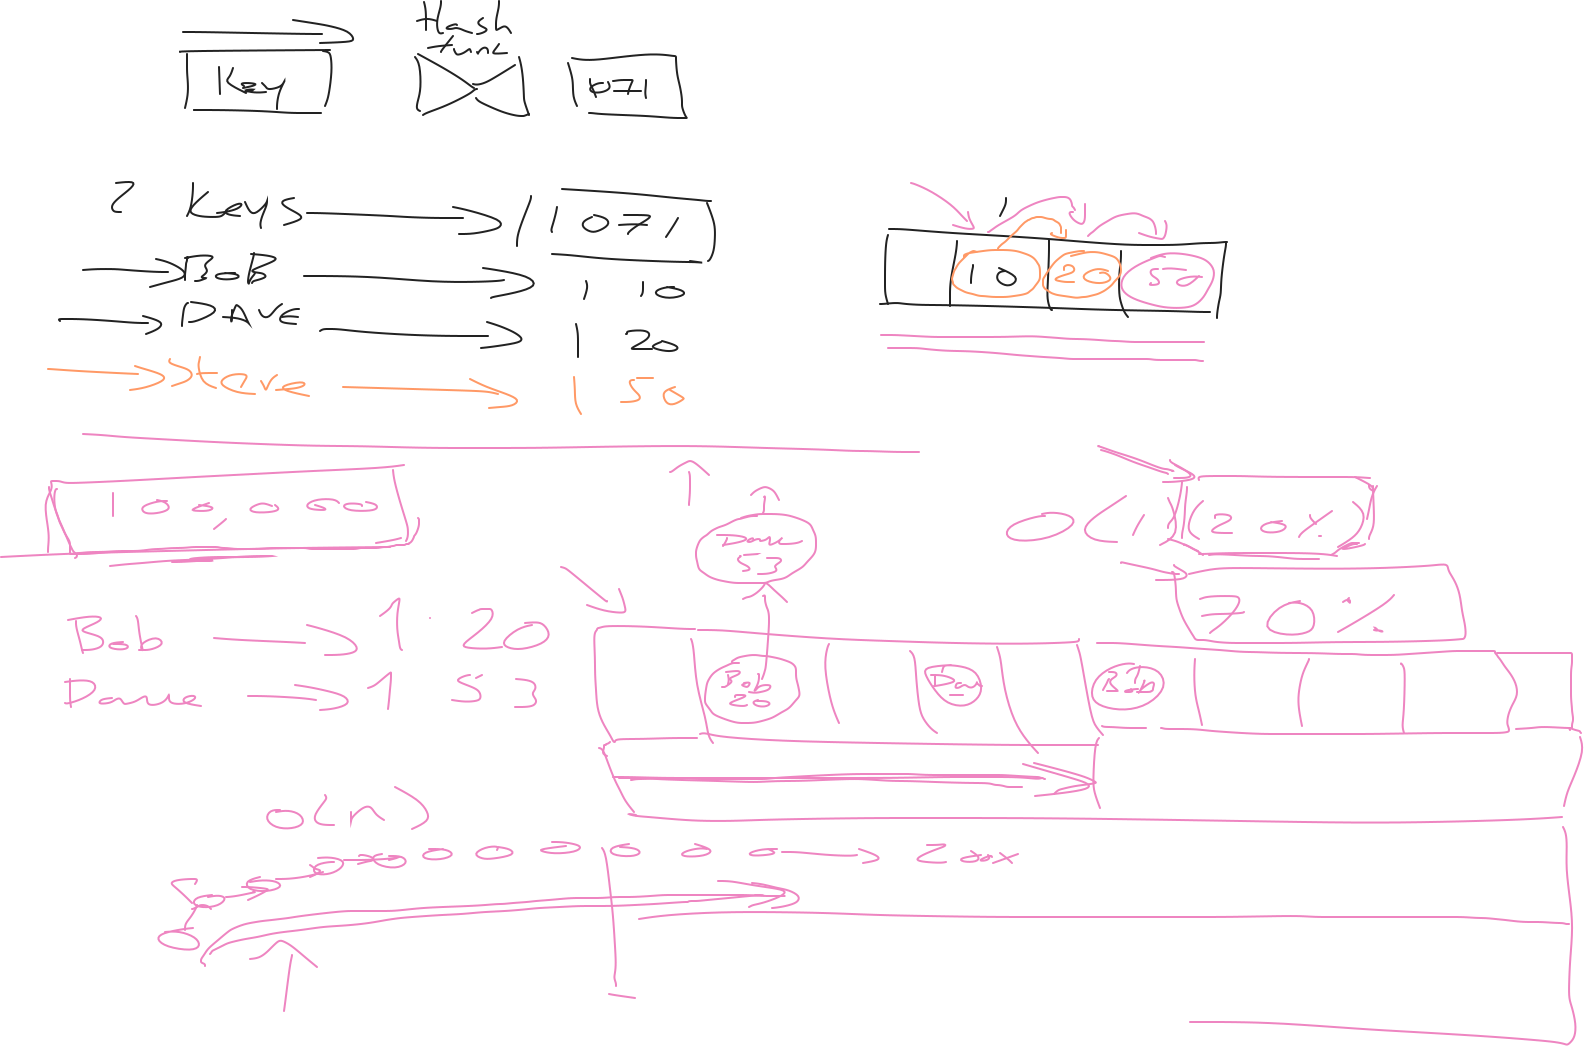 Hash
func
Key
1071
2 Keys 1 071
BoB 1 10
DAVE 1 20
Steve 1 50
10 20 50
100,000
O(1) (20%)
70%
Dave
53
Bob 1 20
Dave 1 53
Bob
20
Dav
Bob
O(n)
200x